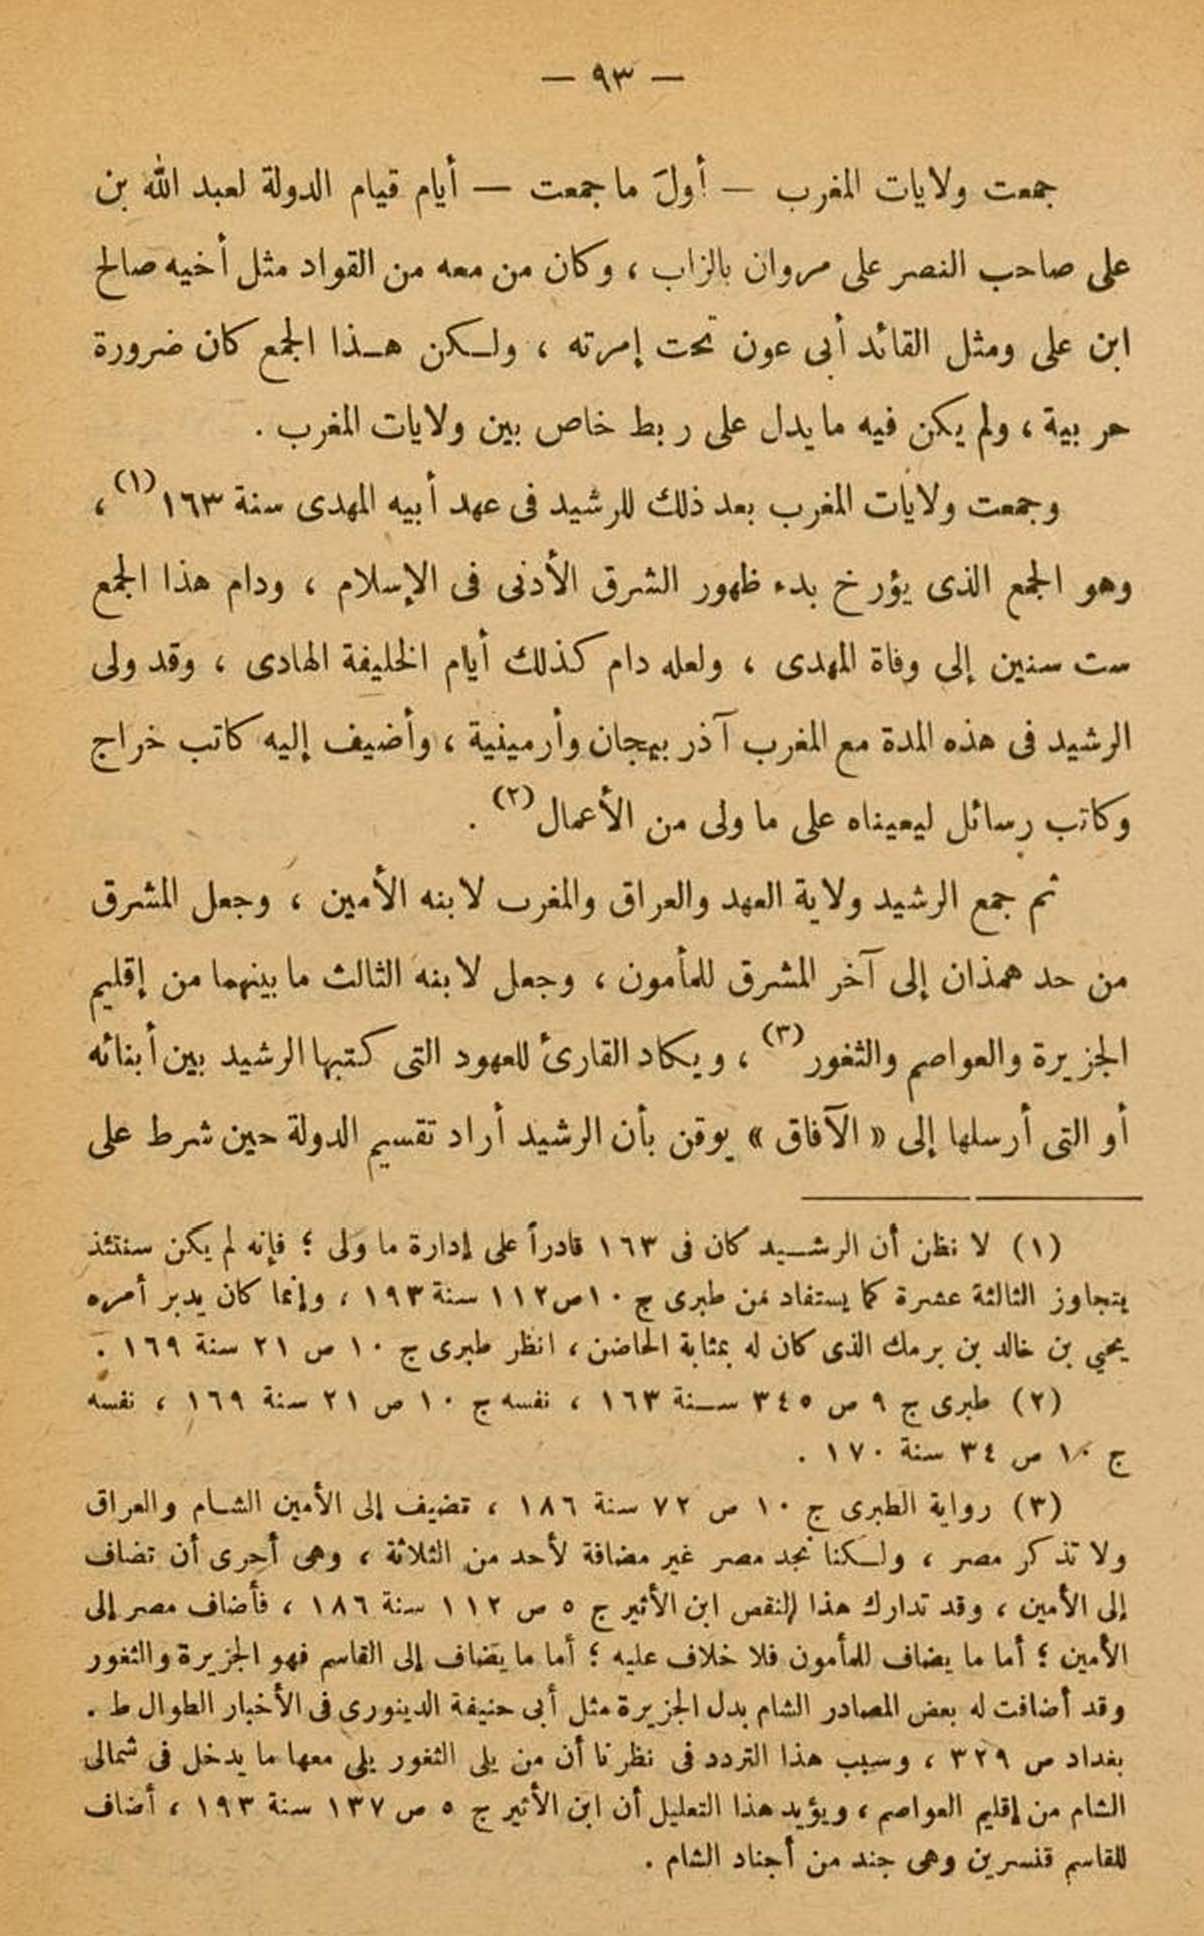 — ٩٣ —
جمعت ولايات المغرب — أولَ ما جمعت — أيام قيام الدولة لعبد الله بن
على صاحب النصر على مروان بالزاب ، وكان من معه من القواد مثل أخيه صالح
ابن على ومثل القائد أبى عون تحت إمرته ، ولـكن هـذا الجمع كان ضرورة
حربية ، ولم يكن فيه ما يدل على ربط خاص بين ولايات المغرب .
وجمعت ولايات المغرب بعد ذلك للرشيد فى عهد أبيه المهدى سنة ١٦٣(١) ،
وهو الجمع الذى يؤرخ بدء ظهور الشرق الأدنى فى الإسلام ، ودام هذا الجمع
ست سنين إلى وفاة المهدى ، ولعله دام كذلك أيام الخليفة الهادى ، وقد ولى
الرشيد فى هذه المدة مع المغرب آذربيجان وأرمينية ، وأضيف إليه كاتب خراج
وكاتب رسائل ليعيناه على ما ولى من الأعمال(٢) .
ثم جمع الرشيد ولاية العهد والعراق والمغرب لابنه الأمين ، وجعل المشرق
من حد همذان إلى آخر المشرق للمأمون ، وجعل لابنه الثالث ما بينهما من إقليم
الجزيرة والعواصم والثغور(٣) ، ويكاد القارئ للعهود التى كتبها الرشيد بين أبنائه
أو التى أرسلها إلى « الآفاق » يوقن بأن الرشيد أراد تقسيم الدولة حين شرط على
(١) لا نظن أن الرشـيد كان فى ١٦٣ قادراً على إدارة ما ولى ؛ فإنه لم يكن سنتئذ
يتجاوز الثالثة عشرة كما يستفاد من طبرى ج ١٠ ص ١١٢ سنة ١٩٣ ، وإنما كان يدبر أمره
يحيي بن خالد بن برمك الذى كان له بمثابة الحاضن ، انظر طبرى ج ١٠ ص ٢١ سنة ١٦٩ .
(٢) طبرى ج ٩ ص ٣٤٥ سـنة ١٦٣ ، نفسه ج ١٠ ص ٢١ سنة ١٦٩ ، نفسه
ج ١٠ ص ٣٤ سنة ١٧٠ .
(٣) رواية الطبرى ج ١٠ ص ٧٢ سنة ١٨٦ ، تضيف إلى الأمين الشـام والعراق
ولا تذكر مصر ، ولـكنا نجد مصر غير مضافة لأحد من الثلاثة ، وهى أحرى أن تضاف
إلى الأمين ، وقد تدارك هذا النقص ابن الأثير ج ٥ ص ١١٢ سنة ١٨٦ ، فأضاف مصر إلى
الأمين ؛ أما ما يضاف للمأمون فلا خلاف عليه ؛ أما ما يضاف إلى القاسم فهو الجزيرة والثغور
وقد أضافت له بعض المصادر الشام بدل الجزيرة مثل أبى حنيفة الدينورى فى الأخبار الطوال ط .
بغداد ص ٣٢٩ ، وسبب هذا التردد فى نظرنا أن من يلى الثغور يلى معها ما يدخل فى شمالى
الشام من إقليم العواصم ، ويؤيد هذا التعليل أن ابن الأثير ج ٥ ص ١٣٧ سنة ١٩٣ ، أضاف
للقاسم قنسرين وهى جند من أجناد الشام .